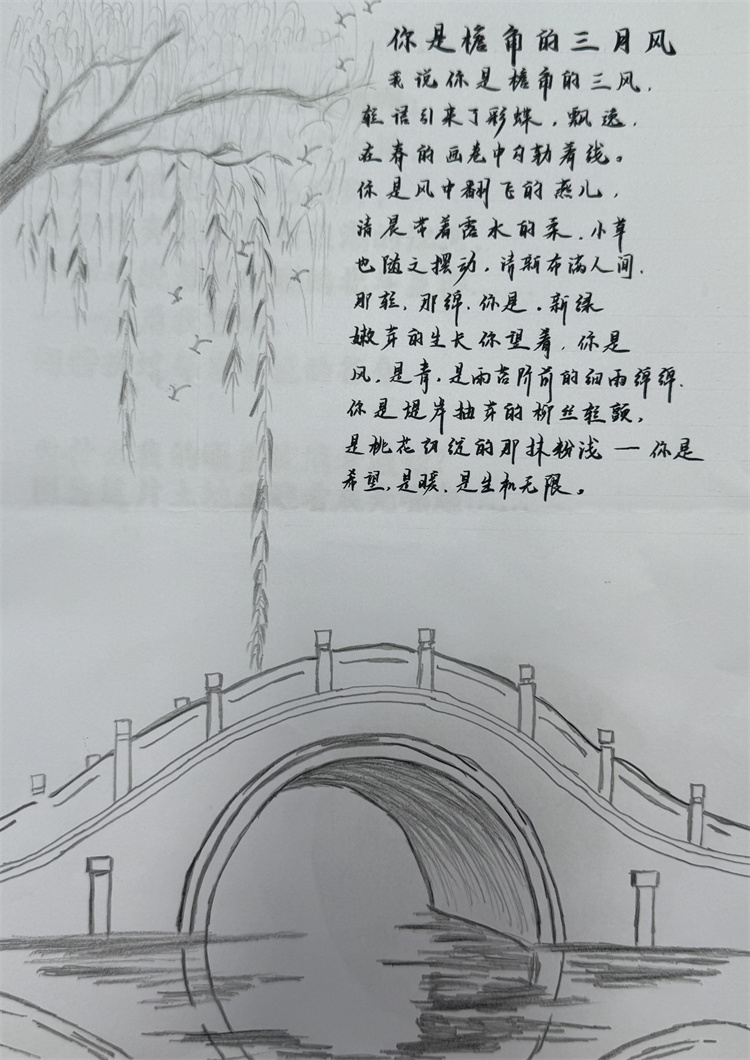 你是檐角的三月风
我说你是檐角的三风，
轻语引来了彩蝶，飘逸，
在春的画卷中勾勒着线。
你是风中翻飞的燕儿，
清晨带着露水的柔，小草
也随之摆动，清新布满人间，
那轻，那绵，你是，新绿
嫩芽的生长你望着，你是
风，是青，是雨苔阶前的细雨绵绵，
你是堤岸抽芽的柳丝轻颤，
是桃花初绽的那抹粉浅——你是
希望，是暖，是生机无限。